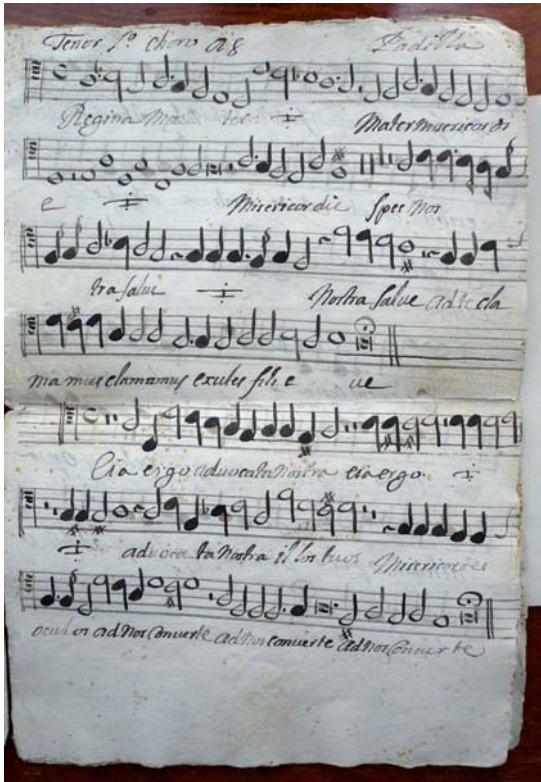 Tenor 1º choro a 8 Padilla
Regina Ma ter Mater misericordi
e Misericordie spes nos
tra salue Nostra salue ad te cla
ma mus clamamus exules filie ue
Eia ergo aduocata nostra eia ergo
aduoca ta nostra illos tuos Misericordes
oculos ad nos conuerte ad nos conuerte ad nos conuerte